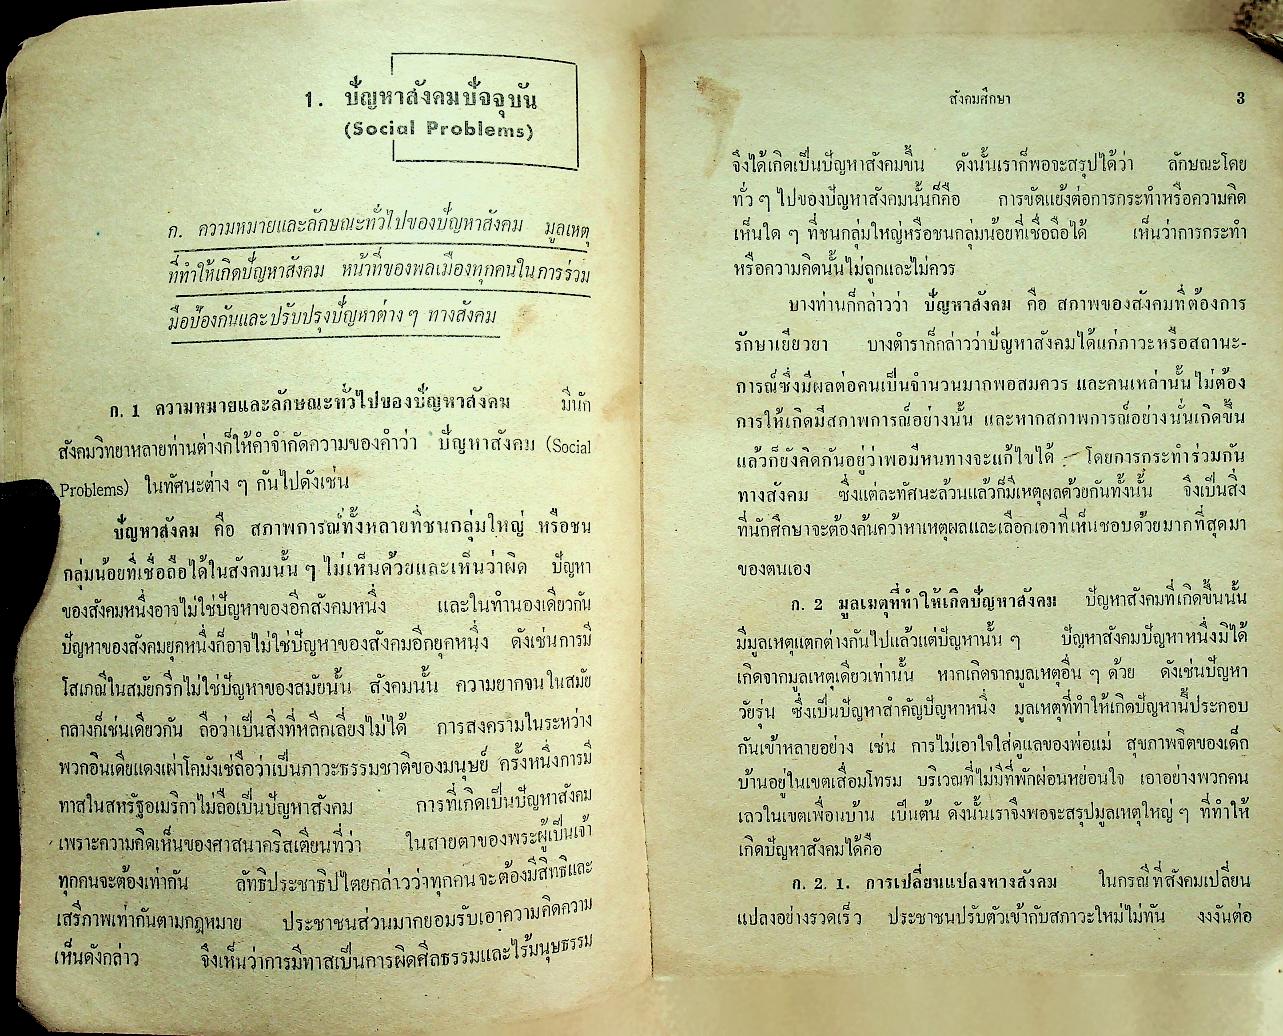 1. ปัญหาสังคมปัจจุบัน
(Social Problems)
ก. ความหมายและลักษณะทั่วไปของปัญหาสังคม มูลเหตุ
ที่ทำให้เกิดปัญหาสังคม หน้าที่ของพลเมืองทุกคนในการร่วม
มือป้องกันและปรับปรุงปัญหาต่าง ๆ ทางสังคม
ก. 1 ความหมายและลักษณะทั่วไปของปัญหาสังคม มีนัก
สังคมวิทยาหลายท่านต่างก็ให้คำจำกัดความของคำว่า ปัญหาสังคม (Social
Problems) ในทัศนะต่าง ๆ กันไปดังเช่น
ปัญหาสังคม คือ สภาพการณ์ทั้งหลายที่ชนกลุ่มใหญ่ หรือชน
กลุ่มน้อยที่เชื่อถือได้ในสังคมนั้น ๆ ไม่เห็นด้วยและเห็นว่าผิด ปัญหา
ของสังคมหนึ่งอาจไม่ใช่ปัญหาของอีกสังคมหนึ่ง และในทำนองเดียวกัน
ปัญหาของสังคมยุคหนึ่งก็อาจไม่ใช่ปัญหาของสังคมอีกยุคหนึ่ง ดังเช่นการมี
โสเภณีในสมัยกรีกไม่ใช่ปัญหาของสมัยนั้น สังคมนั้น ความยากจนในสมัย
กลางก็เช่นเดียวกัน ถือว่าเป็นสิ่งที่หลีกเลี่ยงไม่ได้ การสงครามในระหว่าง
พวกอินเดียแดงเผ่าโคมังเช่ถือว่าเป็นภาวะธรรมชาติของมนุษย์ ครั้งหนึ่งการมี
ทาสในสหรัฐอเมริกาไม่ถือเป็นปัญหาสังคม การที่เกิดเป็นปัญหาสังคม
เพราะความคิดเห็นของศาสนาคริสเตียนที่ว่า ในสายตาของพระผู้เป็นเจ้า
ทุกคนจะต้องเท่ากัน ลัทธิประชาธิปไตยกล่าวว่าทุกคนจะต้องมีสิทธิและ
เสรีภาพเท่ากันตามกฎหมาย ประชาชนส่วนมากยอมรับเอาความคิดความ
เห็นดังกล่าว จึงเห็นว่าการมีทาสเป็นการผิดศีลธรรมและไร้มนุษธรรม
สังคมศึกษา 3
จึงได้เกิดเป็นปัญหาสังคมขึ้น ดังนั้นเราก็พอจะสรุปได้ว่า ลักษณะโดย
ทั่ว ๆ ไปของปัญหาสังคมนั้นก็คือ การขัดแย้งต่อการกระทำหรือความคิด
เห็นใด ๆ ที่ชนกลุ่มใหญ่หรือชนกลุ่มน้อยที่เชื่อถือได้ เห็นว่าการกระทำ
หรือความคิดนั้นไม่ถูกและไม่ควร
บางท่านก็กล่าวว่า ปัญหาสังคม คือ สภาพของสังคมที่ต้องการ
รักษาเยียวยา บางตำราก็กล่าวว่าปัญหาสังคมได้แก่ภาวะหรือสถานะ-
การณ์ซึ่งมีผลต่อคนเป็นจำนวนมากพอสมควร และคนเหล่านั้นไม่ต้อง
การให้เกิดมีสภาพการณ์อย่างนั้น และหากสภาพการณ์อย่างนั่นเกิดขึ้น
แล้วก็ยังคิดกันอยู่ว่าพอมีหนทางจะแก้ไขได้ โดยการกระทำร่วมกัน
ทางสังคม ซึ่งแต่ละทัศนะล้วนแล้วก็มีเหตุผลด้วยกันทั้งนั้น จึงเป็นสิ่ง
ที่นักศึกษาจะต้องค้นคว้าหาเหตุผลและเลือกเอาที่เห็นชอบด้วยมากที่สุดมา
ของตนเอง
ก. 2 มูลเหตุที่ทำให้เกิดปัญหาสังคม ปัญหาสังคมที่เกิดขึ้นนั้น
มีมูลเหตุแตกต่างกันไปแล้วแต่ปัญหานั้น ๆ ปัญหาสังคมปัญหาหนึ่งมิได้
เกิดจากมูลเหตุเดียวเท่านั้น หากเกิดจากมูลเหตุอื่น ๆ ด้วย ดังเช่นปัญหา
วัยรุ่น ซึ่งเป็นปัญหาสำคัญปัญหาหนึ่ง มูลเหตุที่ทำให้เกิดปัญหานี้ประกอบ
กันเข้าหลายอย่าง เช่น การไม่เอาใจใส่ดูแลของพ่อแม่ สุขภาพจิตของเด็ก
บ้านอยู่ในเขตเสื่อมโทรม บริเวณที่ไม่มีที่พักผ่อนหย่อนใจ เอาอย่างพวกคน
เลวในเขตเพื่อนบ้าน เป็นต้น ดังนั้นเราจึงพอจะสรุปมูลเหตุใหญ่ ๆ ที่ทำให้
เกิดปัญหาสังคมได้คือ
ก. 2. 1. การเปลี่ยนแปลงทางสังคม ในกรณีที่สังคมเปลี่ยน
แปลงอย่างรวดเร็ว ประชาชนปรับตัวเข้ากับสภาวะใหม่ไม่ทัน งงงันต่อ